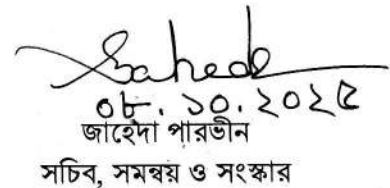 Saheda
০৮. ১০. ২০২৫
জাহেদা পারভীন
সচিব, সমন্বয় ও সংস্কার